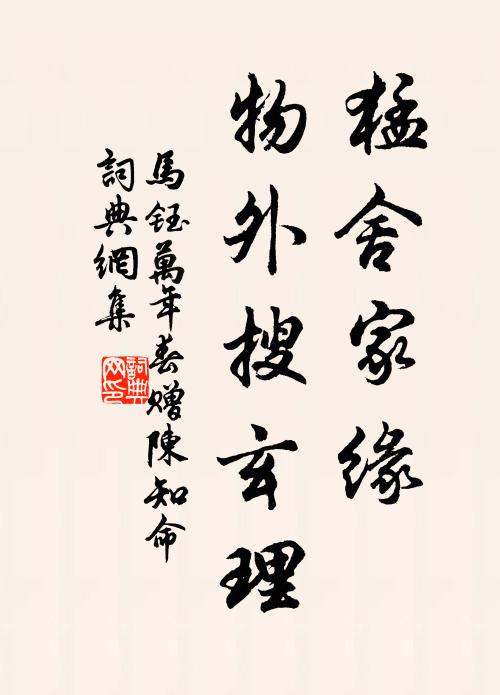 猛舍家緣
物外搜玄理
馬鈺萬年春贈陳知命
詞典網集
詞典
网印